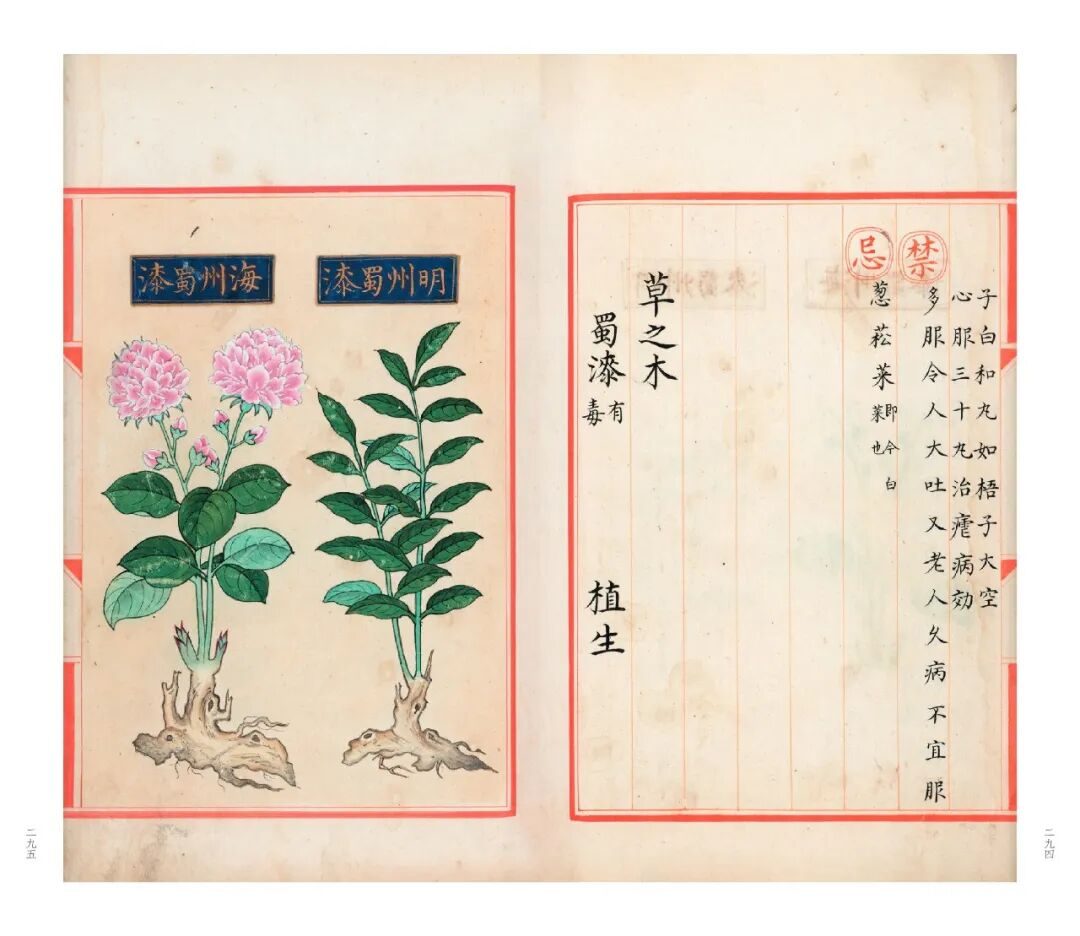 二九四
子白和丸如梧子大空
心服三十丸治瘧病効
禁
多服令人大吐又老人久病不宜服
忌
葱菘菜即今白菜也
草之木
蜀漆有毒 植生
明州蜀漆
海州蜀漆
二九五